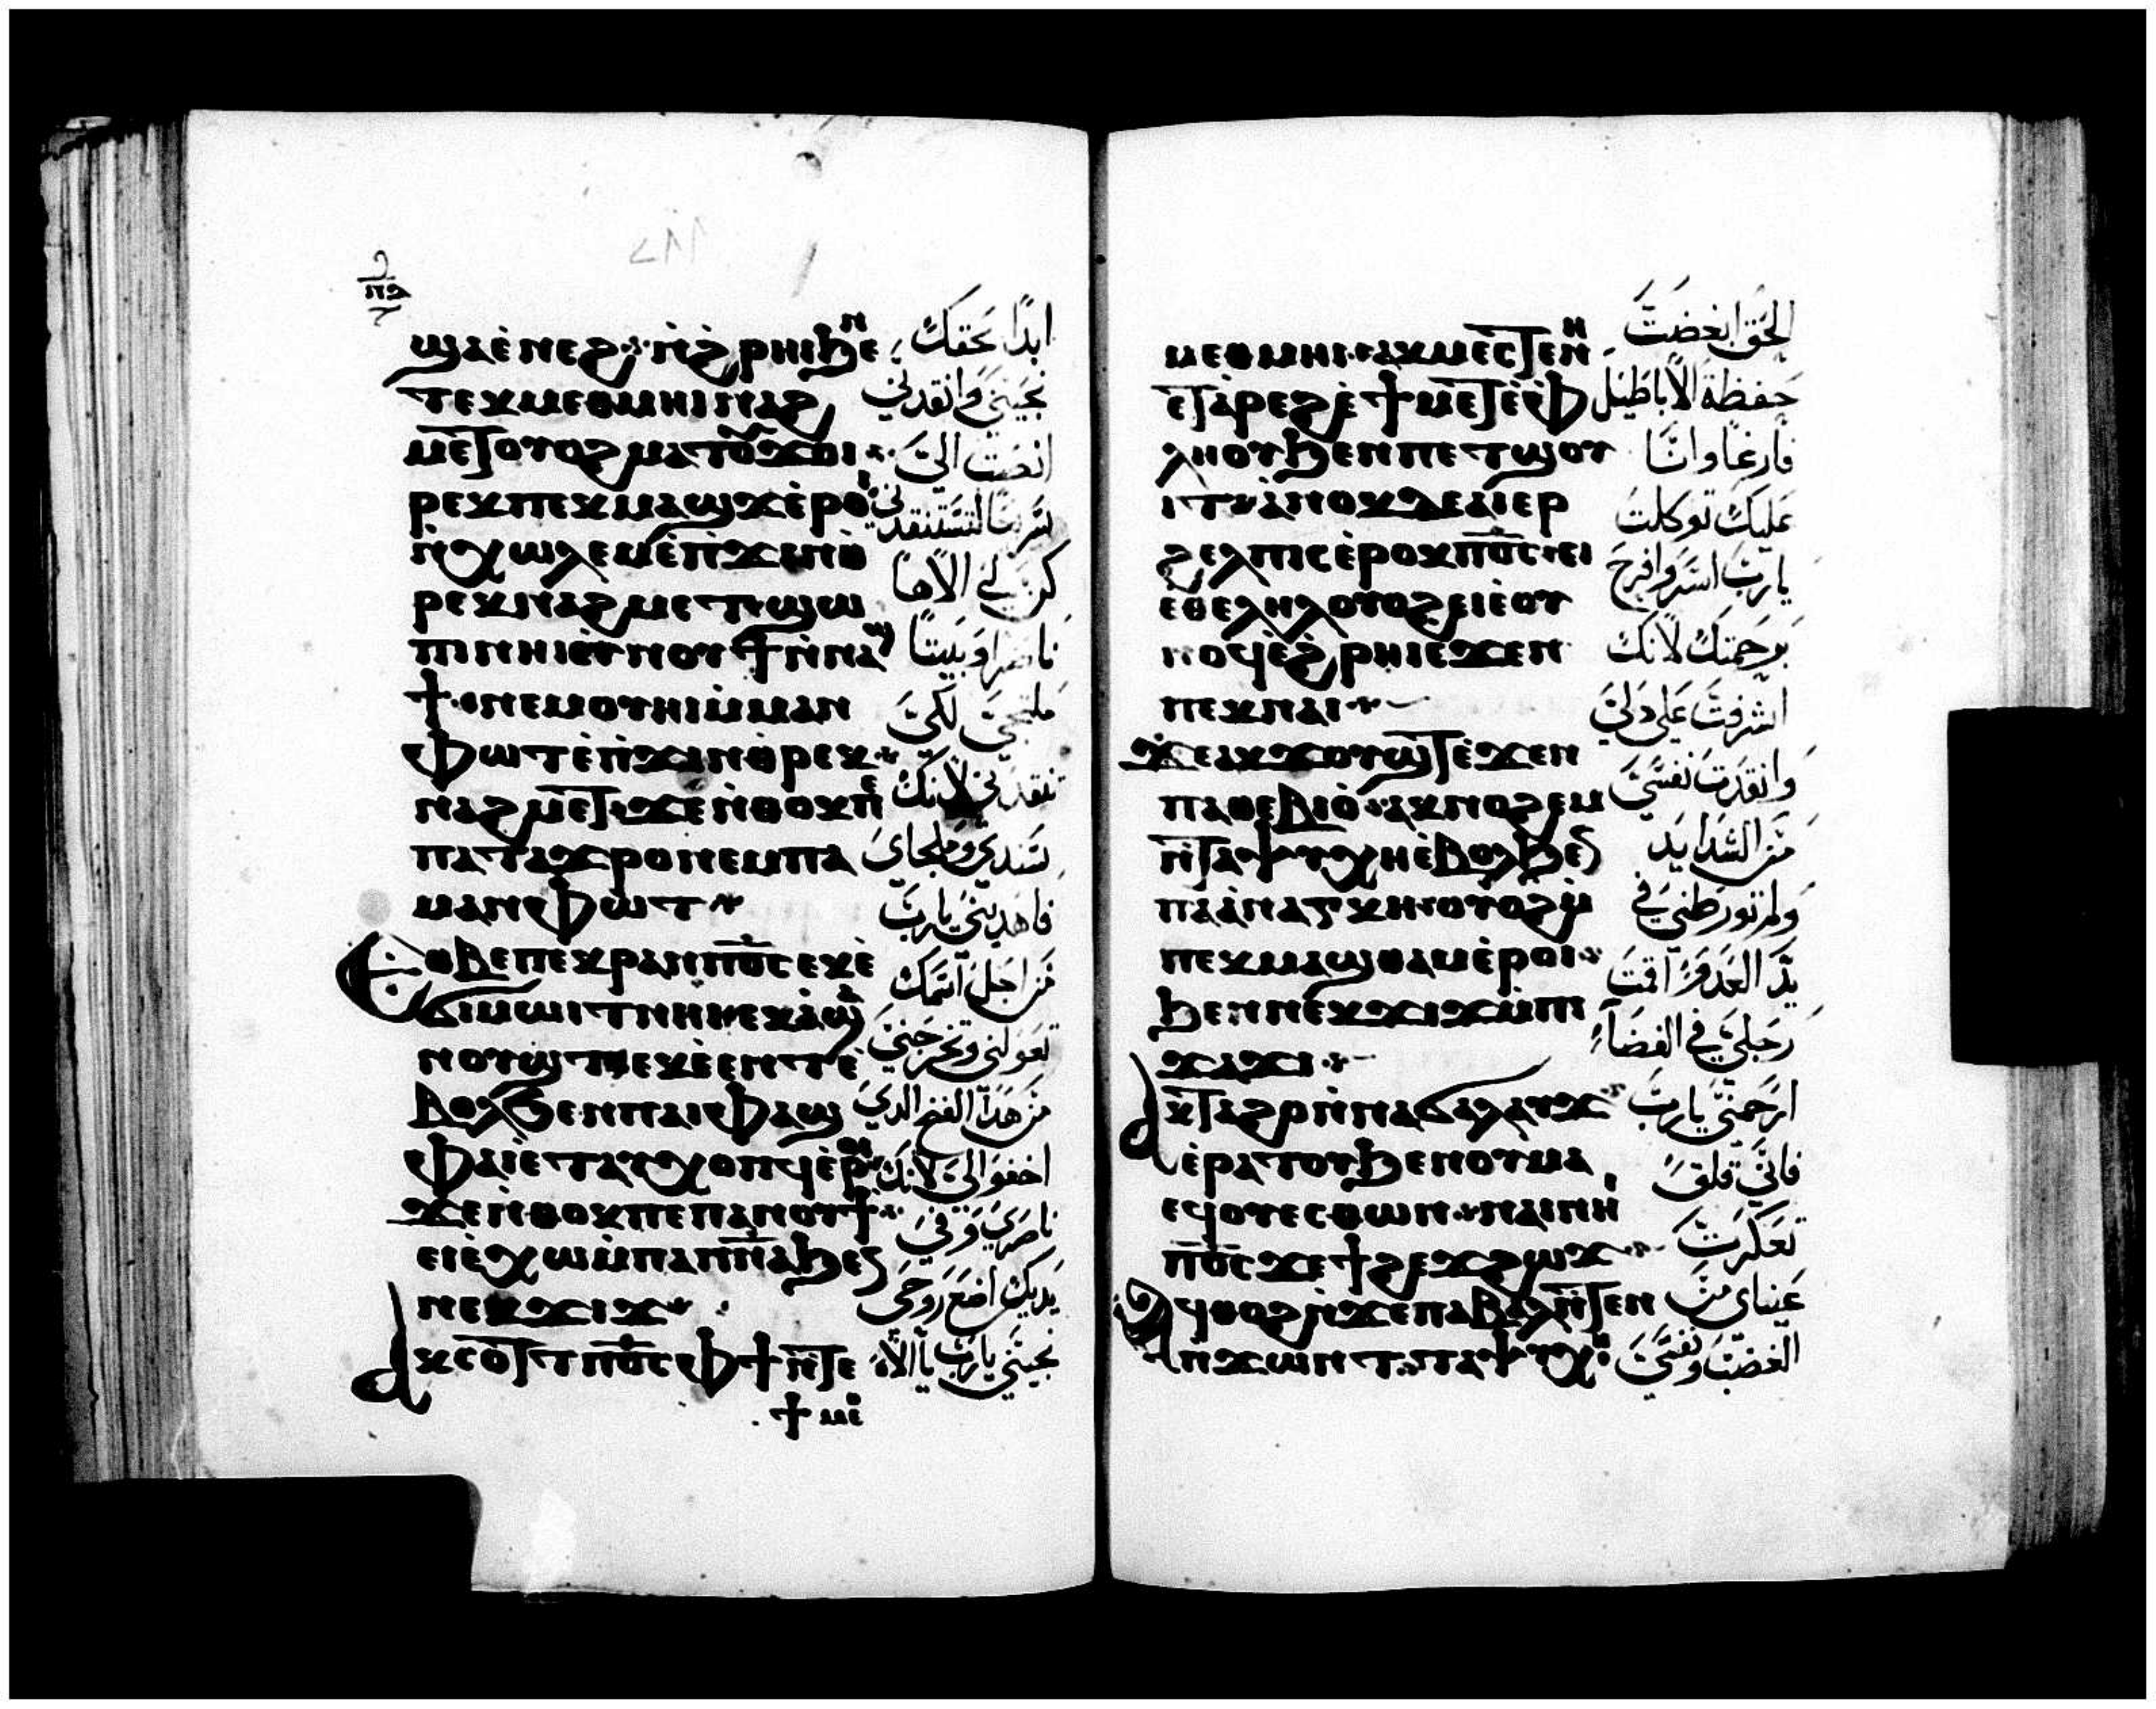 ϣⲁⲉ̀ⲛⲉϩ ⲛ̀ϩ̀ⲣⲏⲓϧⲉⲛ
ⲧⲉⲕⲙⲉⲑⲙⲏⲓ ⲛⲁϩ
ⲙⲉⲧ ⲟⲩⲟϩ ⲙⲁⲧⲟⲩϫⲟⲓ
ⲣⲉⲕ ⲡⲉⲕⲙⲁϣϫ ⲉ̀ⲣⲟⲓ
ⲛ̀ⲭⲱⲗⲉⲙ ⲉ̀ⲡ̀ϫⲓⲛⲑ
ⲣⲉⲕⲛⲁϩⲙⲉⲧ ϣⲱ
ⲡⲓ ⲛⲏⲓ ⲉⲩⲛⲟⲩϯ ⲛ̀ⲛⲁϣ
ϯ ⲛⲉⲙ ⲟⲩⲏⲓ ⲙ̀ⲙⲁⲛ
ⲫⲱⲧ ⲉ̀ⲡ̀ϫⲓⲛⲑⲣⲉⲕ
ⲛⲁϩⲙⲉⲧ ϫⲉ ⲛ̀ⲑⲟⲕ ⲡⲉ
ⲡⲁⲧⲁϫⲣⲟ ⲛⲉⲙ ⲡⲁ
ⲙⲁⲛⲫⲱⲧ
Ⲉⲑⲃⲉ ⲡⲉⲕⲣⲁⲛ ⲡϭⲟⲓⲥ ⲉⲕⲉ̀
ϭⲓⲙⲱⲓⲧ ⲛⲏⲓ ⲉⲕⲉ̀ϣⲁ
ⲛⲟⲩϣⲧ ⲉⲕⲉ̀ⲉⲛⲧ ⲉ̀
ⲃⲟⲗϧⲉⲛ ⲡⲁⲓⲫⲁϣ
ⲫⲁⲓ ⲉⲧⲁⲩⲭⲟⲡϥ ⲉ̀ⲣⲟⲓ
ϫⲉ ⲛ̀ⲑⲟⲕ ⲡⲉ ⲡⲁⲛⲟⲩϯ
ⲉⲓⲉ̀ⲭⲱ ⲙ̀ⲡⲁⲡⲛⲁ ϧⲉⲛ
ⲛⲉⲕϫⲓϫ
ⲁⲕⲥⲟⲧⲧ ⲡϭⲟⲓⲥ ⲫϯ ⲛ̀ⲧⲉ
ϯⲙⲉ
ابدًا بحقك
نجيني وانقدني
انصت اليَّ
سريعًا لتستنقدني
كون لي الاهًا
ناصرًا وبيتًا
ملجيّ لكيّ
تنقدني لانك
سندي وملجاي
فاهديني يارب
من اجل اسمك
تعولني وتخرجني
من هدا الفخ الدي
اخفوا لي لانك
ناصري وفي
يديك اضع روحي
نجيتني يارب يا الاه
ⲙⲉⲑⲙⲏⲓ ⲁⲕⲙⲉⲥⲧⲉ ⲛⲏ
ⲉⲧⲁ̀ⲣⲉϩ ⲉ̀ϯⲙⲉⲧⲉ̀ⲫ
ⲗⲏⲟⲩ ϧⲉⲛ ⲡⲉⲧϣⲟⲩ
ⲓⲧ ⲁ̀ⲛⲟⲕ ⲇⲉ ⲁⲓⲉⲣ
ϩⲉⲗⲡⲓⲥ ⲉ̀ⲣⲟⲕ ⲡϭⲟⲓⲥ ⲉⲓ
ⲉⲑⲉⲗⲏⲗ ⲟⲩⲟϩ ⲉⲓⲉ̀ⲟⲩ
ⲛⲟϥ ⲉ̀ϩ̀ⲣⲏⲓ ⲉϫⲉⲛ
ⲡⲉⲕⲛⲁⲓ
ϫⲉ ⲁⲕϫⲟⲩϣⲧ ⲉ̀ϫⲉⲛ
ⲡⲁⲑⲉⲃⲓⲟ̀ ⲁⲕⲛⲟϩⲉⲙ
ⲛ̀ⲧⲁⲯⲩⲭⲏ ⲉ̀ⲃⲟⲗϧⲉⲛ
ⲡⲁⲁ̀ⲛⲁⲅⲕⲏ ⲟⲩⲟϩ ⲙ̀
ⲡⲉⲕⲙⲁϣⲑⲁⲙ ⲉ̀ⲣⲟⲓ
ϧⲉⲛ ⲛⲉⲛϫⲓϫ ⲙ̀ⲡⲓ
ϫⲁϫⲓ
ⲁⲕⲧⲁϩⲣ ⲛ̀ⲛⲁϭⲁⲗⲁⲩϫ
ⲉ̀ⲣⲁⲧⲟⲩ ϧⲉⲛ ⲟⲩⲙⲁ
ⲉϥⲟⲩⲉⲥⲑⲱⲛ ⲛⲁⲓ ⲛⲏⲓ
ⲡϭⲟⲓⲥ ϫⲉ ϯϩⲉϫϩⲱϫ
ⲁϥⲑⲟϩ ⲛ̀ϫⲉ ⲡⲁⲃⲁⲗ ⲛ̀ⲧⲉⲛ
ⲡ̀ϫⲱⲛⲧ ⲧⲁⲯⲩⲭⲏ
الحق ابغضت
حفظة الاباطيل
فارغًا وانا
عليك توكلت
يارب اسر وافرح
برحمتك لانك
اشرفت على دلي
وانقدت نفسي
من الشدايد
ولم تورطني في
يد العدو اقمت
رجلي في الفضاء
ارحمني يارب
فاني قلق
تعكرت
عيناي من
الغضب ونفسي